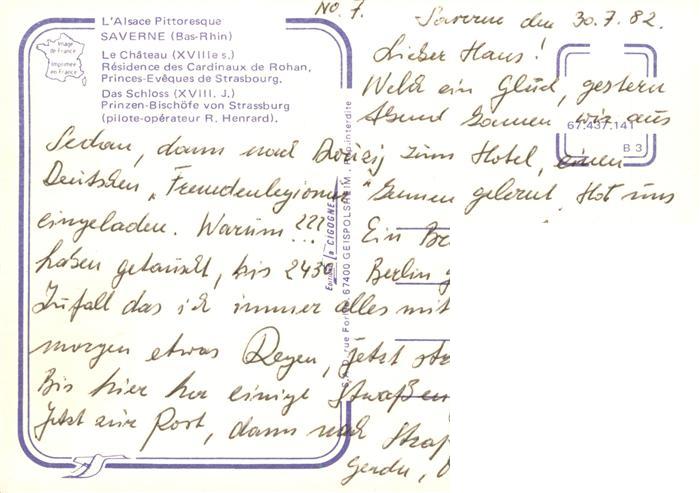 No. 7.
Saverne den 30.7.82.
L'Alsace Pittoresque
SAVERNE (Bas-Rhin)
Le Château (XVIIIe s.)
Résidence des Cardinaux de Rohan,
Princes-Evêques de Strasbourg.
Das Schloss (XVIII. J.)
Prinzen-Bischöfe von Strassburg
(pilote-opérateur R. Henrard).
Image de France
Imprimée en France
67.437.141
B 3
Editions la CIGOGNE
rue 67400 GEISPOLSHEIM interdite
Lieber Hans!
Welch ein Glück, gestern
Abend kamen wir aus
Sedan, dann nach zum Hotel, einen
Deutschen "Fremdenlegionär" kennen gelernt. Hat uns
eingeladen. Warum??? Ein
haben getauscht, bis 24 Berlin
Zufall das ich immer alles mit
morgen etwas Regen, jetzt
Bis hier her einige Straßen
Jetzt zur Post, dann nach